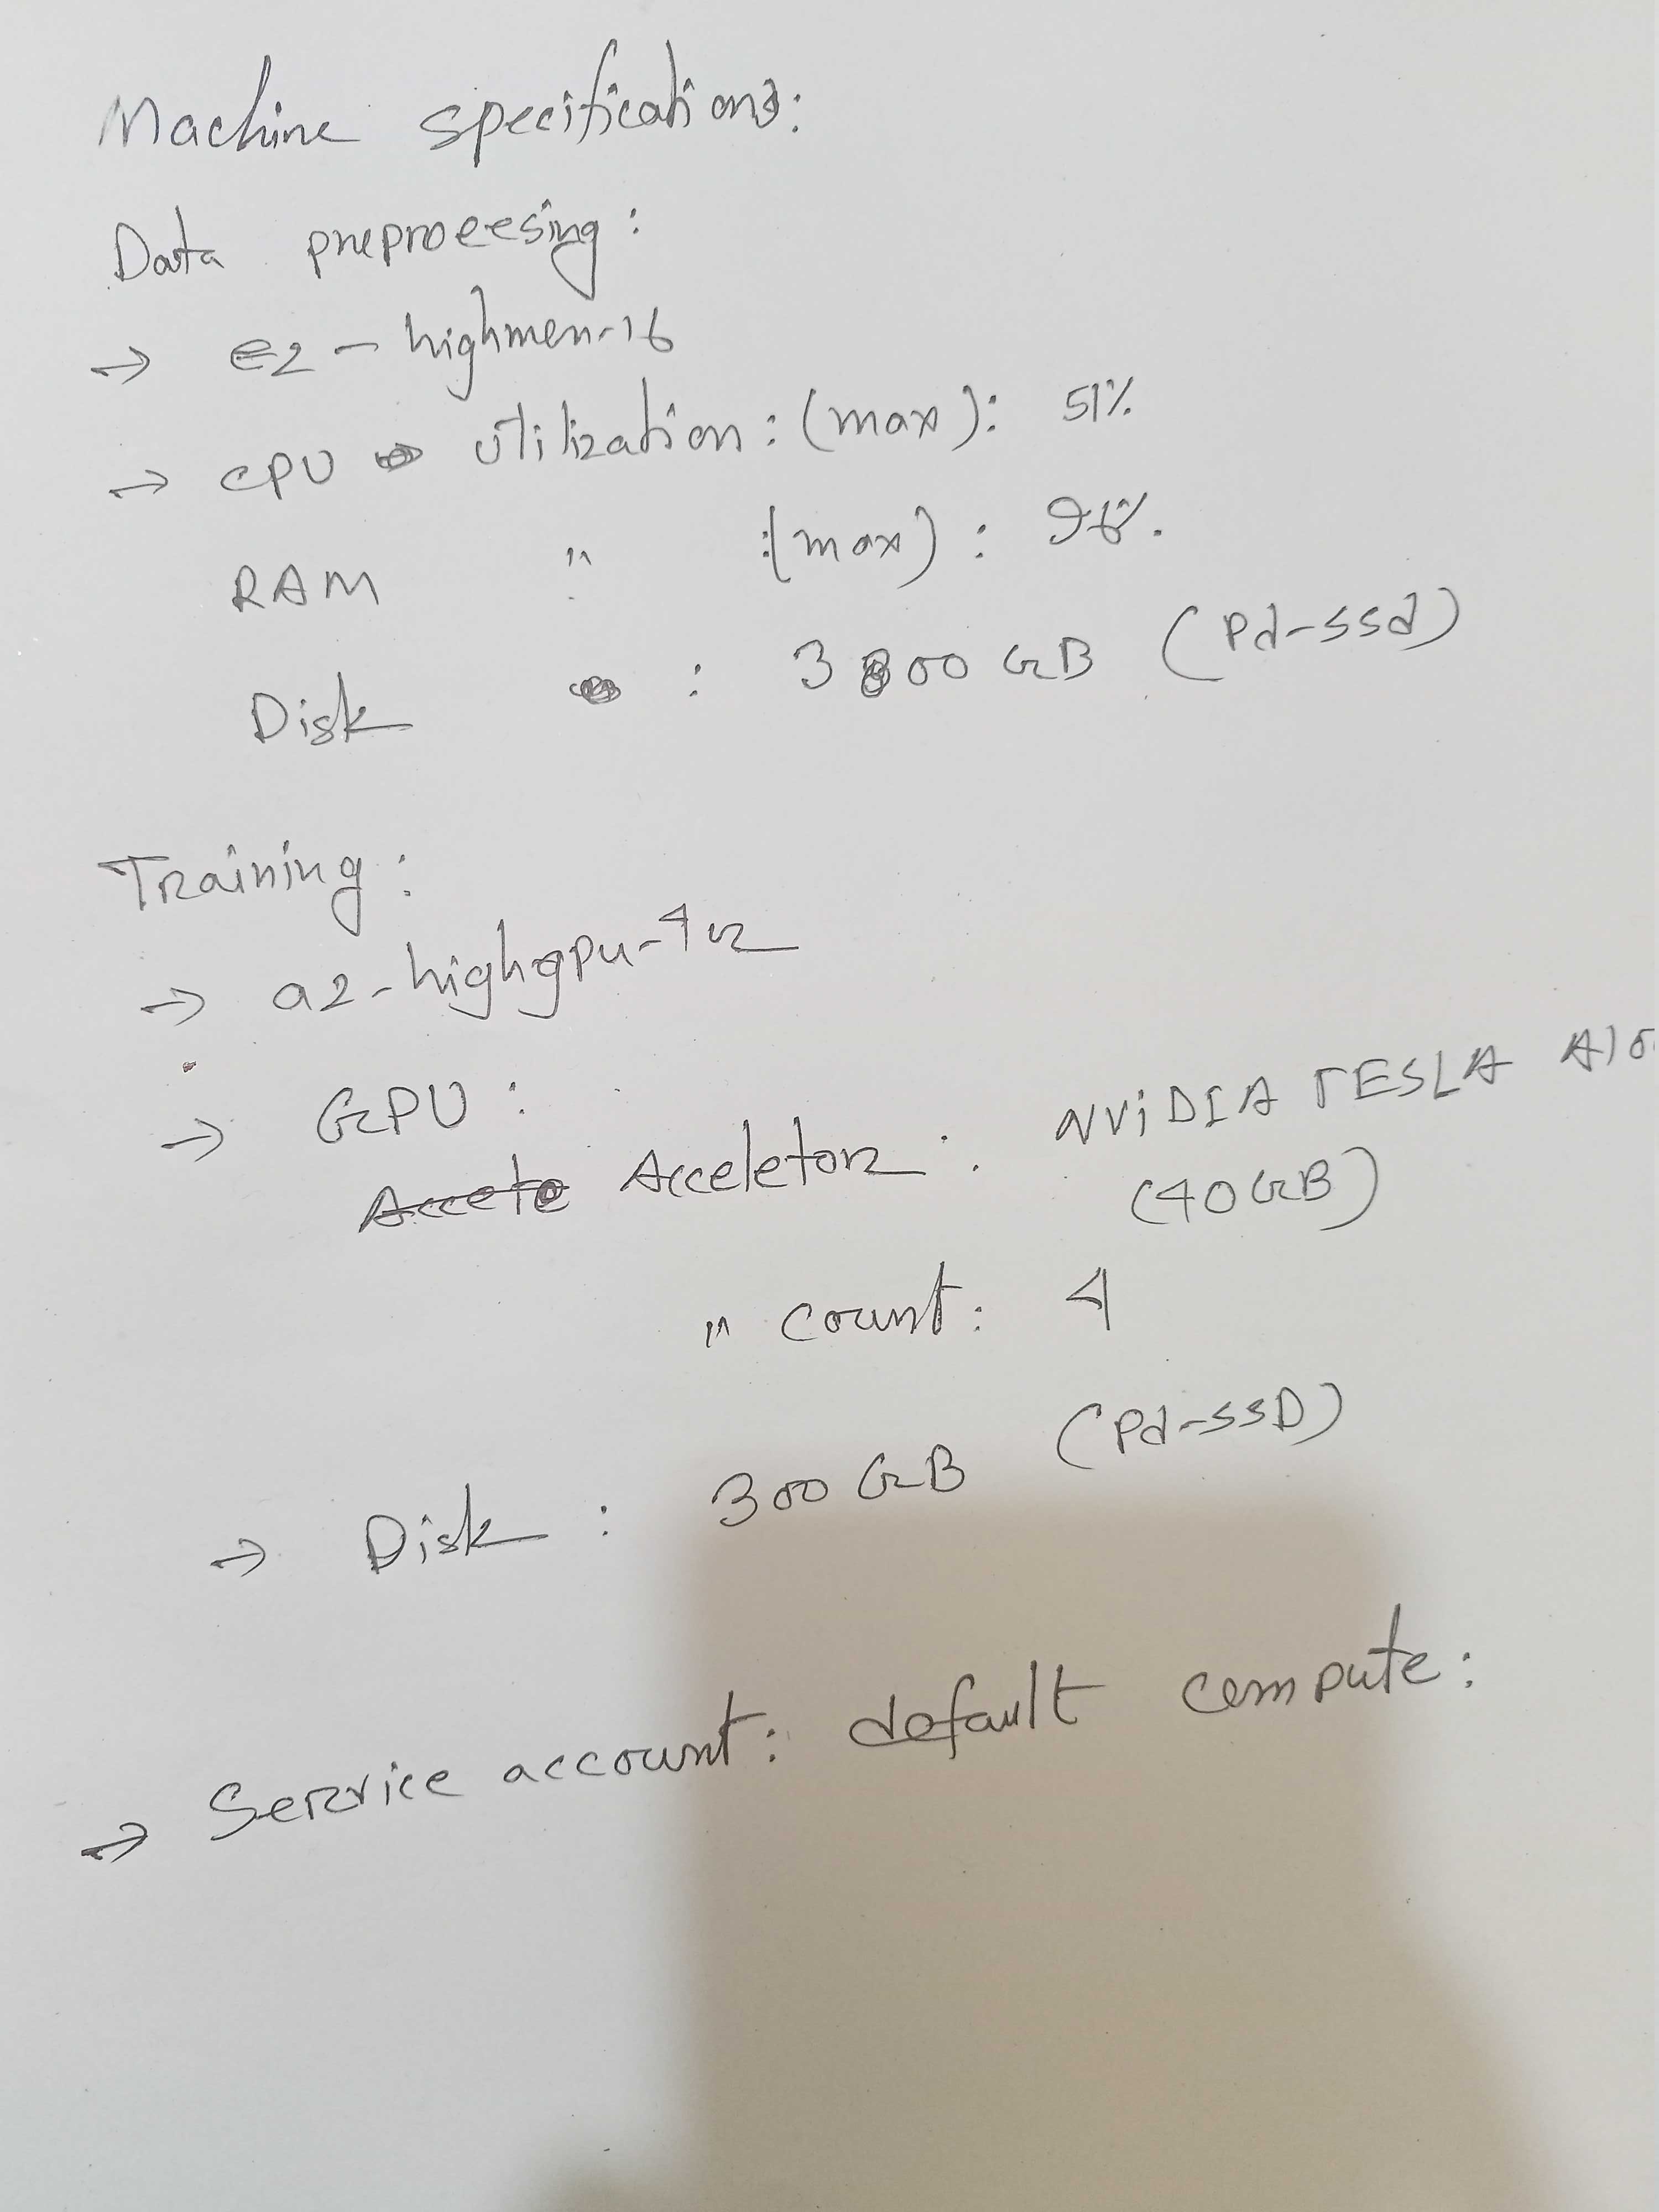 Machine specifications:
Data preprocessing:
→ e2-highmem-16
→ CPU utilization: (max): 51%
RAM " :(max): 96%.
Disk : 300 GB (pd-ssd)
Training:
→ a2-highgpu-4g
→ GPU:
Acceletor: NVIDIA TESLA A10
(40GB)
" count: 4
→ Disk: 300 GB (pd-SSD)
→ Service account: default compute: